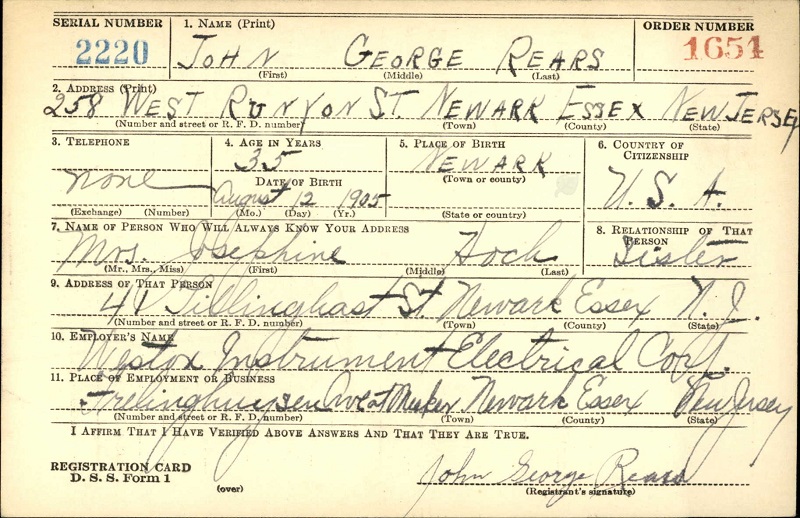 SERIAL NUMBER 1. NAME (Print) ORDER NUMBER
2220 JOHN GEORGE REARS 1654
(First) (Middle) (Last)
2. ADDRESS (Print)
258 WEST RUNYON ST. NEWARK ESSEX NEW JERSEY
(Number and street or R. F. D. number) (Town) (County) (State)
3. TELEPHONE 4. AGE IN YEARS 5. PLACE OF BIRTH 6. COUNTRY OF CITIZENSHIP
none 35 NEWARK U. S. A.
DATE OF BIRTH (Town or county)
August 12 1905
(Exchange) (Number) (Mo.) (Day) (Yr.) (State or country)
7. NAME OF PERSON WHO WILL ALWAYS KNOW YOUR ADDRESS 8. RELATIONSHIP OF THAT PERSON
Mrs. Josephine Hoch Sister
(Mr., Mrs., Miss) (First) (Middle) (Last)
9. ADDRESS OF THAT PERSON
41 Tillinghast St. Newark Essex N. J.
(Number and street or R. F. D. number) (Town) (County) (State)
10. EMPLOYER'S NAME
Weston Instrument Electrical Corp.
11. PLACE OF EMPLOYMENT OR BUSINESS
Frelinghuysen Ave at Meeker Newark Essex New Jersey
(Number and street or R. F. D. number) (Town) (County) (State)
I AFFIRM THAT I HAVE VERIFIED ABOVE ANSWERS AND THAT THEY ARE TRUE.
REGISTRATION CARD
D. S. S. Form 1 (over) John George Rears
(Registrant's signature)